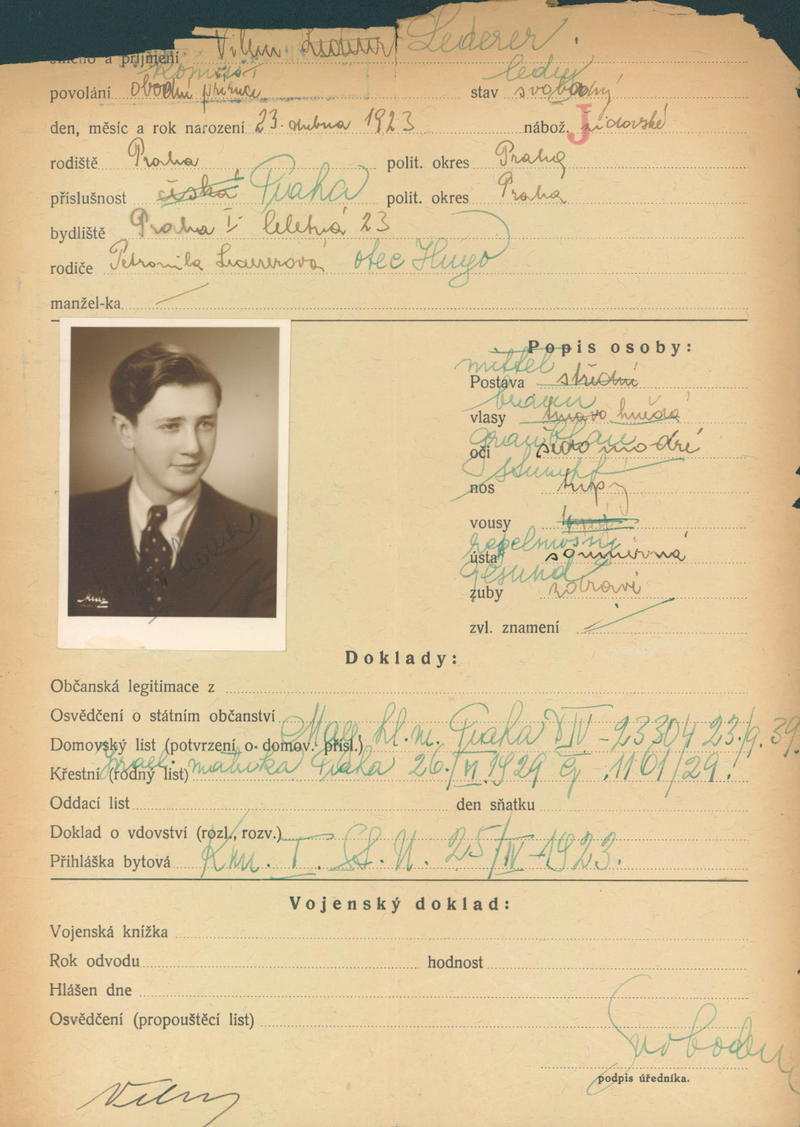 Jméno a příjmení Vilém Lederer Lederer
Komis.
povolání obchodní příručí stav svobodný ledig
den, měsíc a rok narození 23. dubna 1923 nábož. židovské
J
rodiště Praha polit. okres Praha
příslušnost česká Praha polit. okres Praha
bydliště Praha I Celetná 23
rodiče Petronila Ledererová otec Hugo
manžel-ka
Popis osoby:
mittel
Postava střední
braun
vlasy tmavo hnědé
graublau
oči šedo modré
stumpf
nos tupý
vousy
regelmässig
ústa souměrná
gesund
zuby zdravé
zvl. znamení
Doklady:
Občanská legitimace z
Osvědčení o státním občanství
Mag. hl. m. Praha XIV - 23304 23./9. 39
Domovský list (potvrzení o domov. přísl.)
Israel. matrika Praha 26./VI. 1929 čj. 1101/29.
Křestní (rodný list)
Oddací list den sňatku
Doklad o vdovství (rozl., rozv.)
Přihláška bytová Km. I. S. U. 25/IV - 1923.
Vojenský doklad:
Vojenská knížka
Rok odvodu hodnost
Hlášen dne
Osvědčení (propouštěcí list)
Svoboda
podpis úředníka.